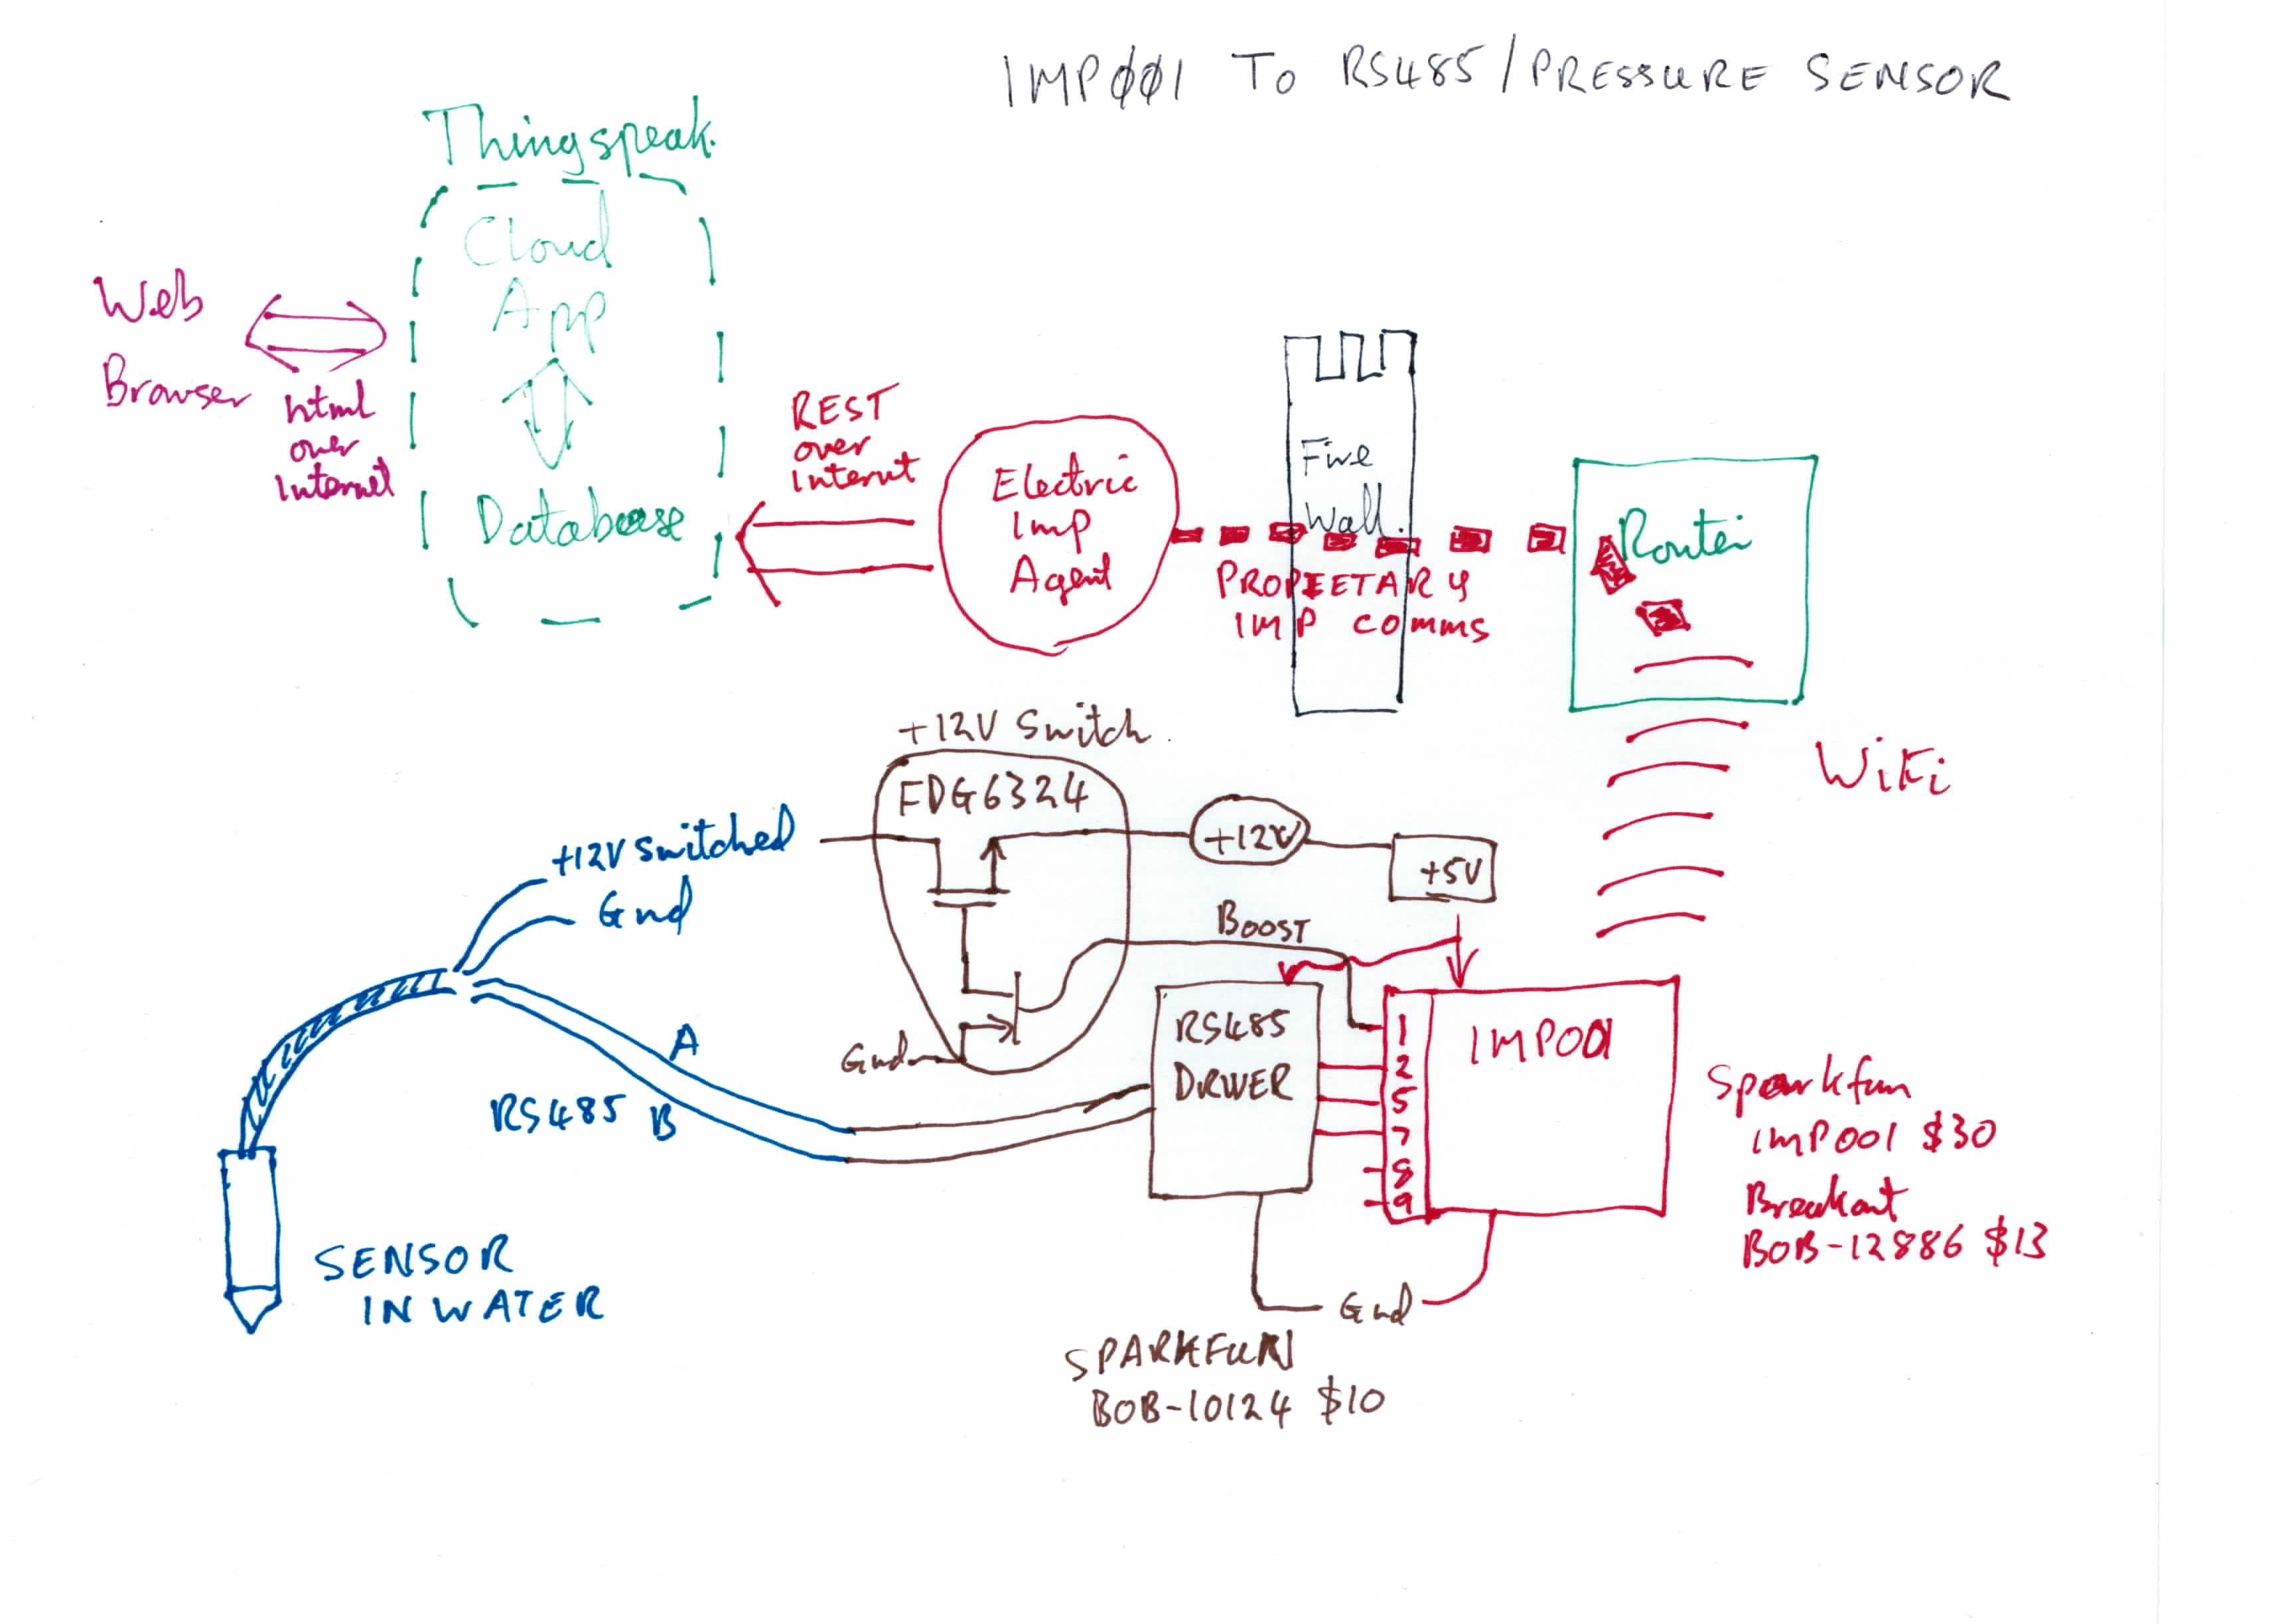 IMP001 To RS485/PRESSURE SENSOR
Thingspeak.
Cloud
App
Database
Web
Browser
html
over
Internet
REST
over
Internet
Electric
Imp
Agent
Fire
Wall.
PROPIETARY
IMP comms
Router
WiFi
+12V Switch.
FDG6324
+12V Switched
Gnd
+12V
+5V
Boost
Gnd
A
RS485 B
RS485
DRIVER
1
2
5
7
8
9
IMP001
Sparkfun
IMP001 $30
Breakout
BOB-12886 $13
SENSOR
IN WATER
Gnd
SPARKFUN
BOB-10124 $10